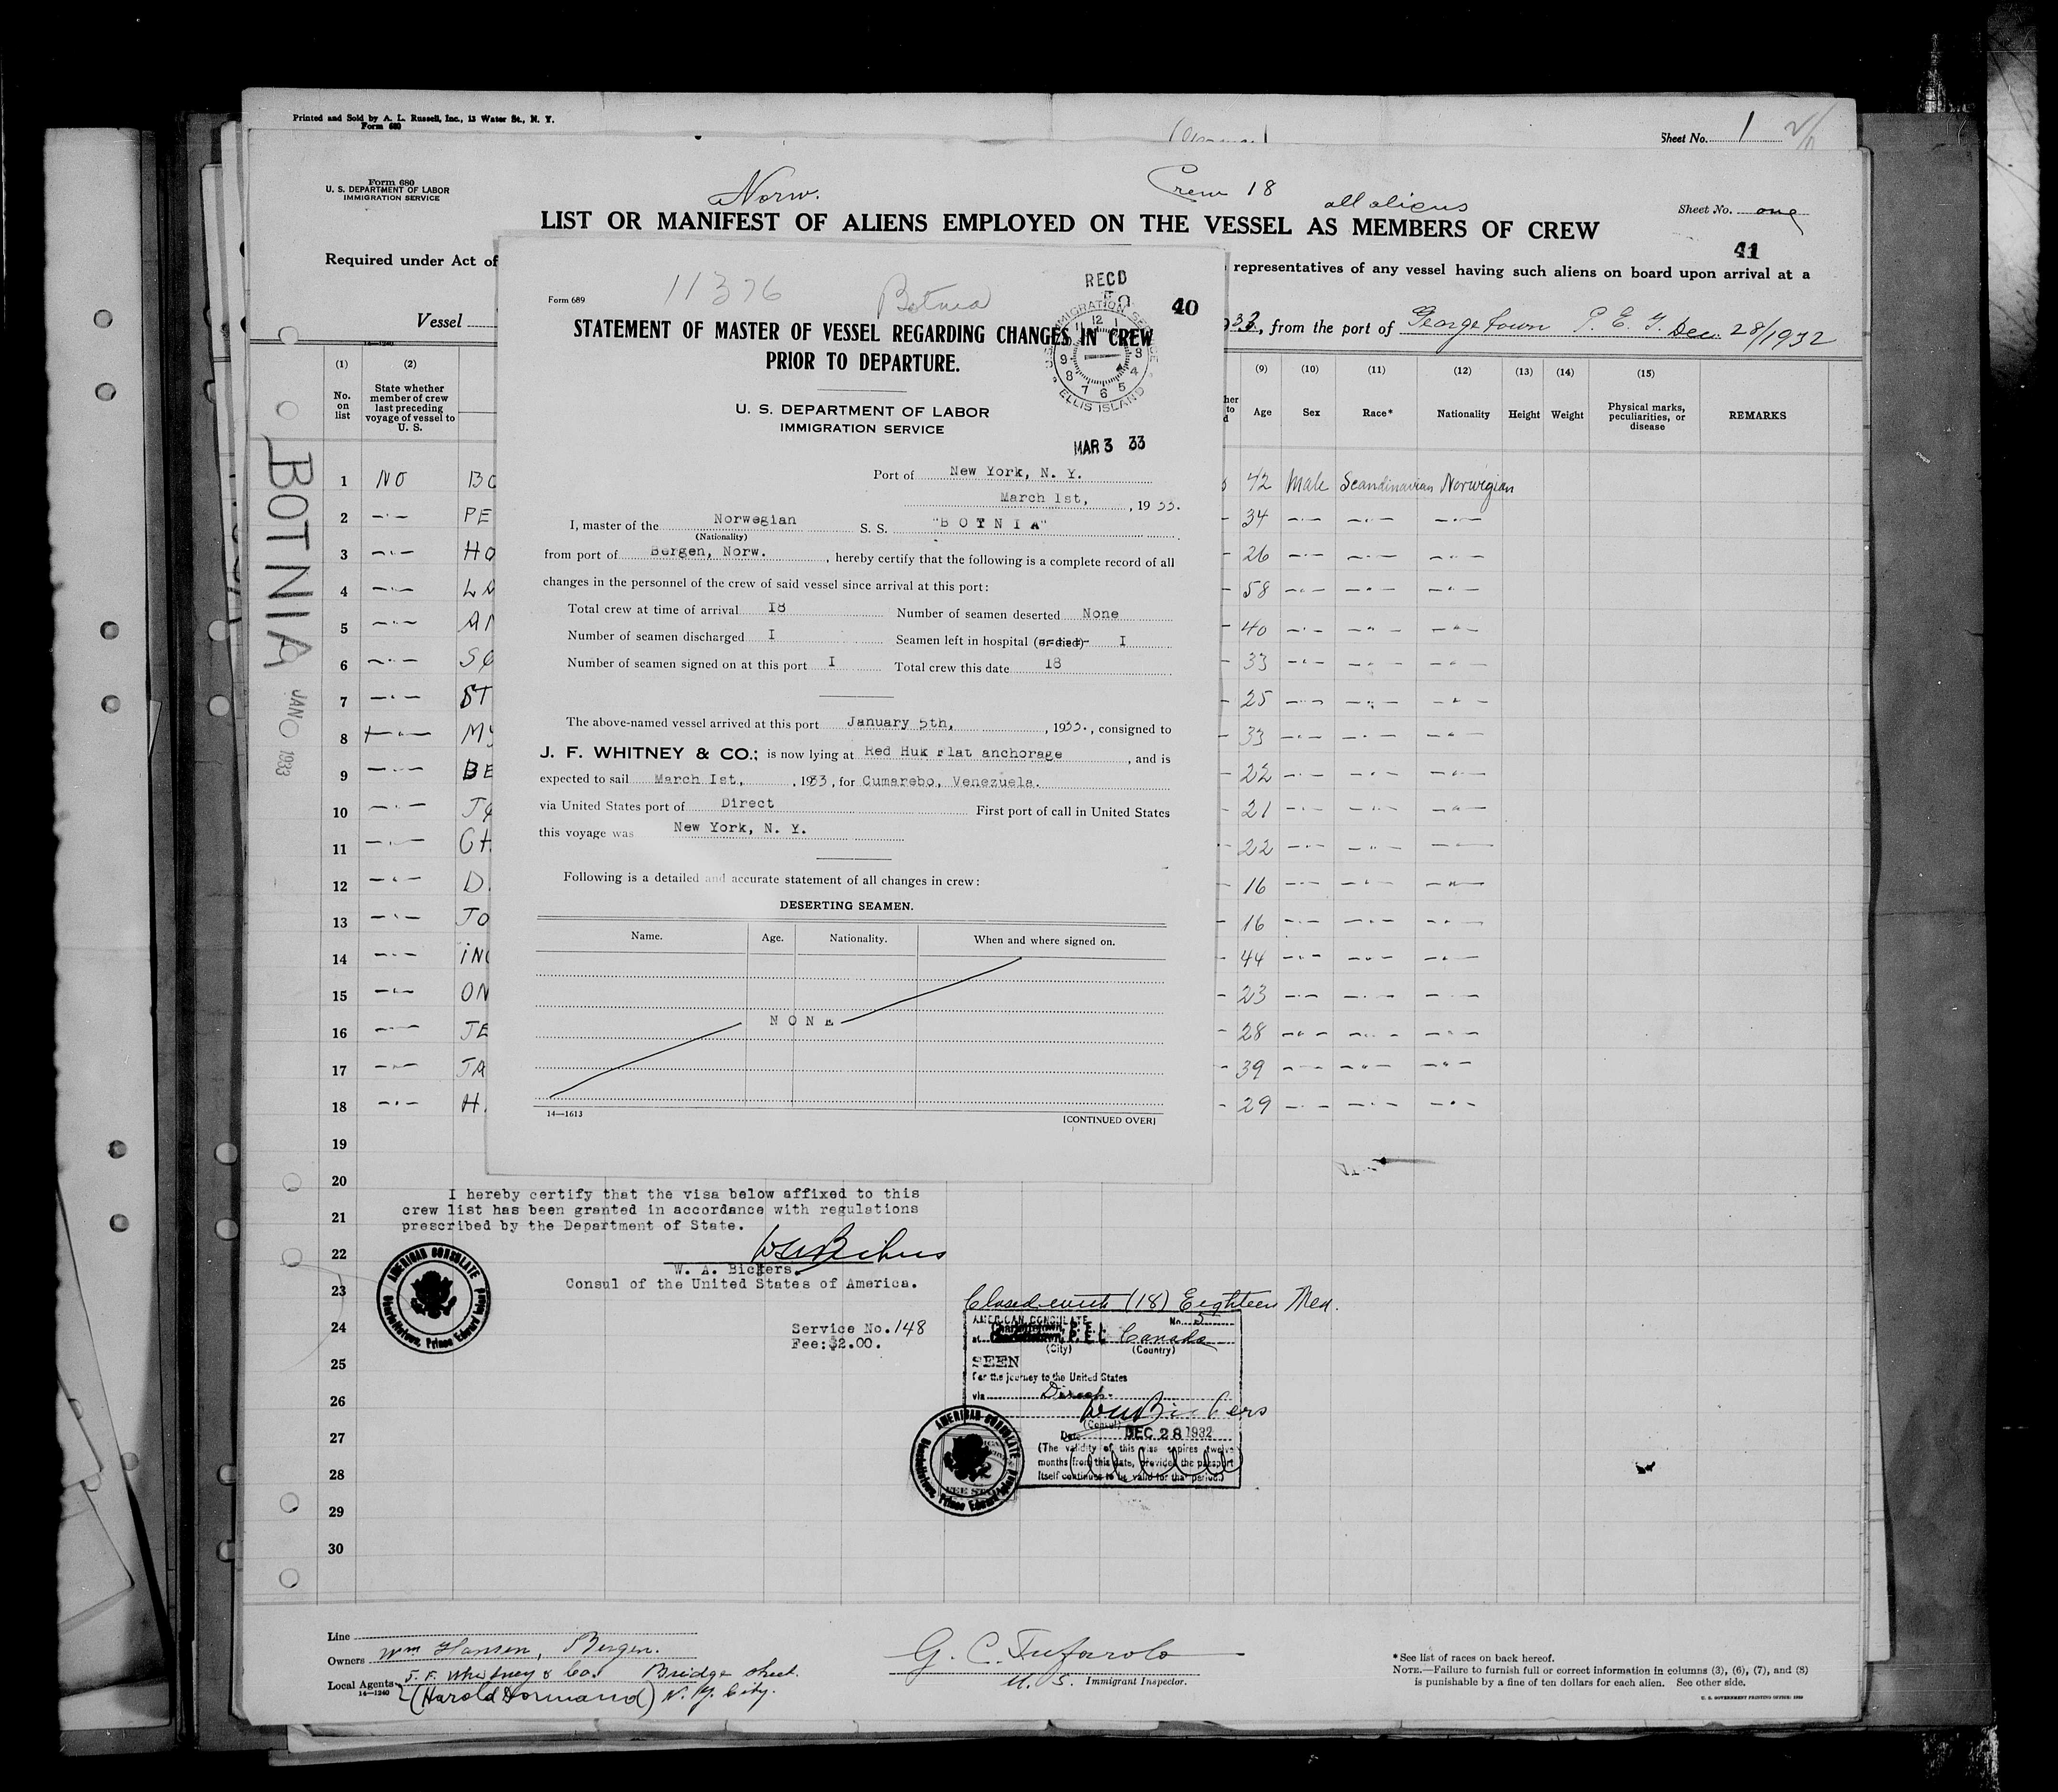 Printed and Sold by A. L. Russell, Inc., 13 Water St., N. Y.
Form 680
Sheet No. 1
Form 680
U. S. DEPARTMENT OF LABOR
IMMIGRATION SERVICE
Norw.
Crew 18
all aliens
Sheet No. one
LIST OR MANIFEST OF ALIENS EMPLOYED ON THE VESSEL AS MEMBERS OF CREW
41
Required under Act of
representatives of any vessel having such aliens on board upon arrival at a
Vessel
33, from the port of Georgetown P. E. I. Dec. 28/1932
14-1240
11376
Botnia
RECD
40
Form 689
STATEMENT OF MASTER OF VESSEL REGARDING CHANGES IN CREW
PRIOR TO DEPARTURE.
U.S. IMMIGRATION SERVICE
ELLIS ISLAND
U. S. DEPARTMENT OF LABOR
IMMIGRATION SERVICE
MAR 3 33
Port of New York, N. Y.
March 1st, , 1933.
I, master of the Norwegian S. S. "BOTNIA"
(Nationality)
from port of Bergen, Norw. , hereby certify that the following is a complete record of all
changes in the personnel of the crew of said vessel since arrival at this port:
Total crew at time of arrival I8 Number of seamen deserted None
Number of seamen discharged I Seamen left in hospital (or died) I
Number of seamen signed on at this port I Total crew this date 18
The above-named vessel arrived at this port January 5th, , 1933., consigned to
J. F. WHITNEY & CO.; is now lying at Red Huk Flat anchorage , and is
expected to sail March Ist, , 1933, for Cumarebo, Venezuela.
via United States port of Direct First port of call in United States
this voyage was New York, N. Y.
Following is a detailed and accurate statement of all changes in crew:
DESERTING SEAMEN.
Name. Age. Nationality. When and where signed on.
NONE
14—1613
[CONTINUED OVER]
BOTNIA
JAN 1933
(1) (2) (9) (10) (11) (12) (13) (14) (15)
No. on list
State whether member of crew last preceding voyage of vessel to U. S.
Age Sex Race* Nationality Height Weight Physical marks, peculiarities, or disease REMARKS
1 NO BO 42 Male Scandinavian Norwegian
2 —"— PE — 34 —"— —"— —"—
3 —"— HO — 26 —"— —"— —"—
4 —"— LA — 58 —"— —"— —"—
5 —"— AN — 40 —"— —"— —"—
6 —"— — 33 —"— —"— —"—
7 —"— ST — 25 —"— —"— —"—
8 —"— MY — 33 —"— —"— —"—
9 —"— BE — 22 —"— —"— —"—
10 —"— — 21 —"— —"— —"—
11 —"— CH — 22 —"— —"— —"—
12 —"— D. — 16 —"— —"— —"—
13 —"— JO — 16 —"— —"— —"—
14 —"— ING — 44 —"— —"— —"—
15 —"— ON — 23 —"— —"— —"—
16 —"— JE — 28 —"— —"— —"—
17 —"— JA — 39 —"— —"— —"—
18 —"— H. — 29 —"— —"— —"—
19
20
21
22
23
24
25
26
27
28
29
30
I hereby certify that the visa below affixed to this
crew list has been granted in accordance with regulations
prescribed by the Department of State.
W. A. Bickers.
Consul of the United States of America.
AMERICAN CONSULATE
Charlottetown, Prince Edward Island
Service No. 148
Fee: $2.00.
Closed with (18) Eighteen Men.
AMERICAN CONSULATE No.
at Charlottetown, P.E.I. Canada
(City) (Country)
SEEN
For the journey to the United States
via Direct
(Consul)
Date DEC 28 1932
(The validity of this visa expires twelve
months from this date, provided the passport
itself continues to be valid for that period.)
AMERICAN CONSULATE
Charlottetown, Prince Edward Island
Line
Owners Wm Hansen, Bergen.
Local Agents J. F. Whitney & Co. Bridge street.
14-1240
(Harold Dormand) N. Y. City.
G. C. Tufarolo
U. S. Immigrant Inspector.
* See list of races on back hereof.
NOTE.—Failure to furnish full or correct information in columns (3), (6), (7), and (8)
is punishable by a fine of ten dollars for each alien. See other side.
U. S. GOVERNMENT PRINTING OFFICE